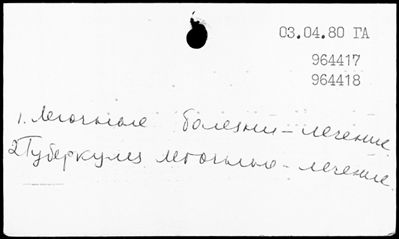 03.04.80 ГА
964417
964418
1. Легочные болезни – лечение.
2. Туберкулез легочные – лечение.